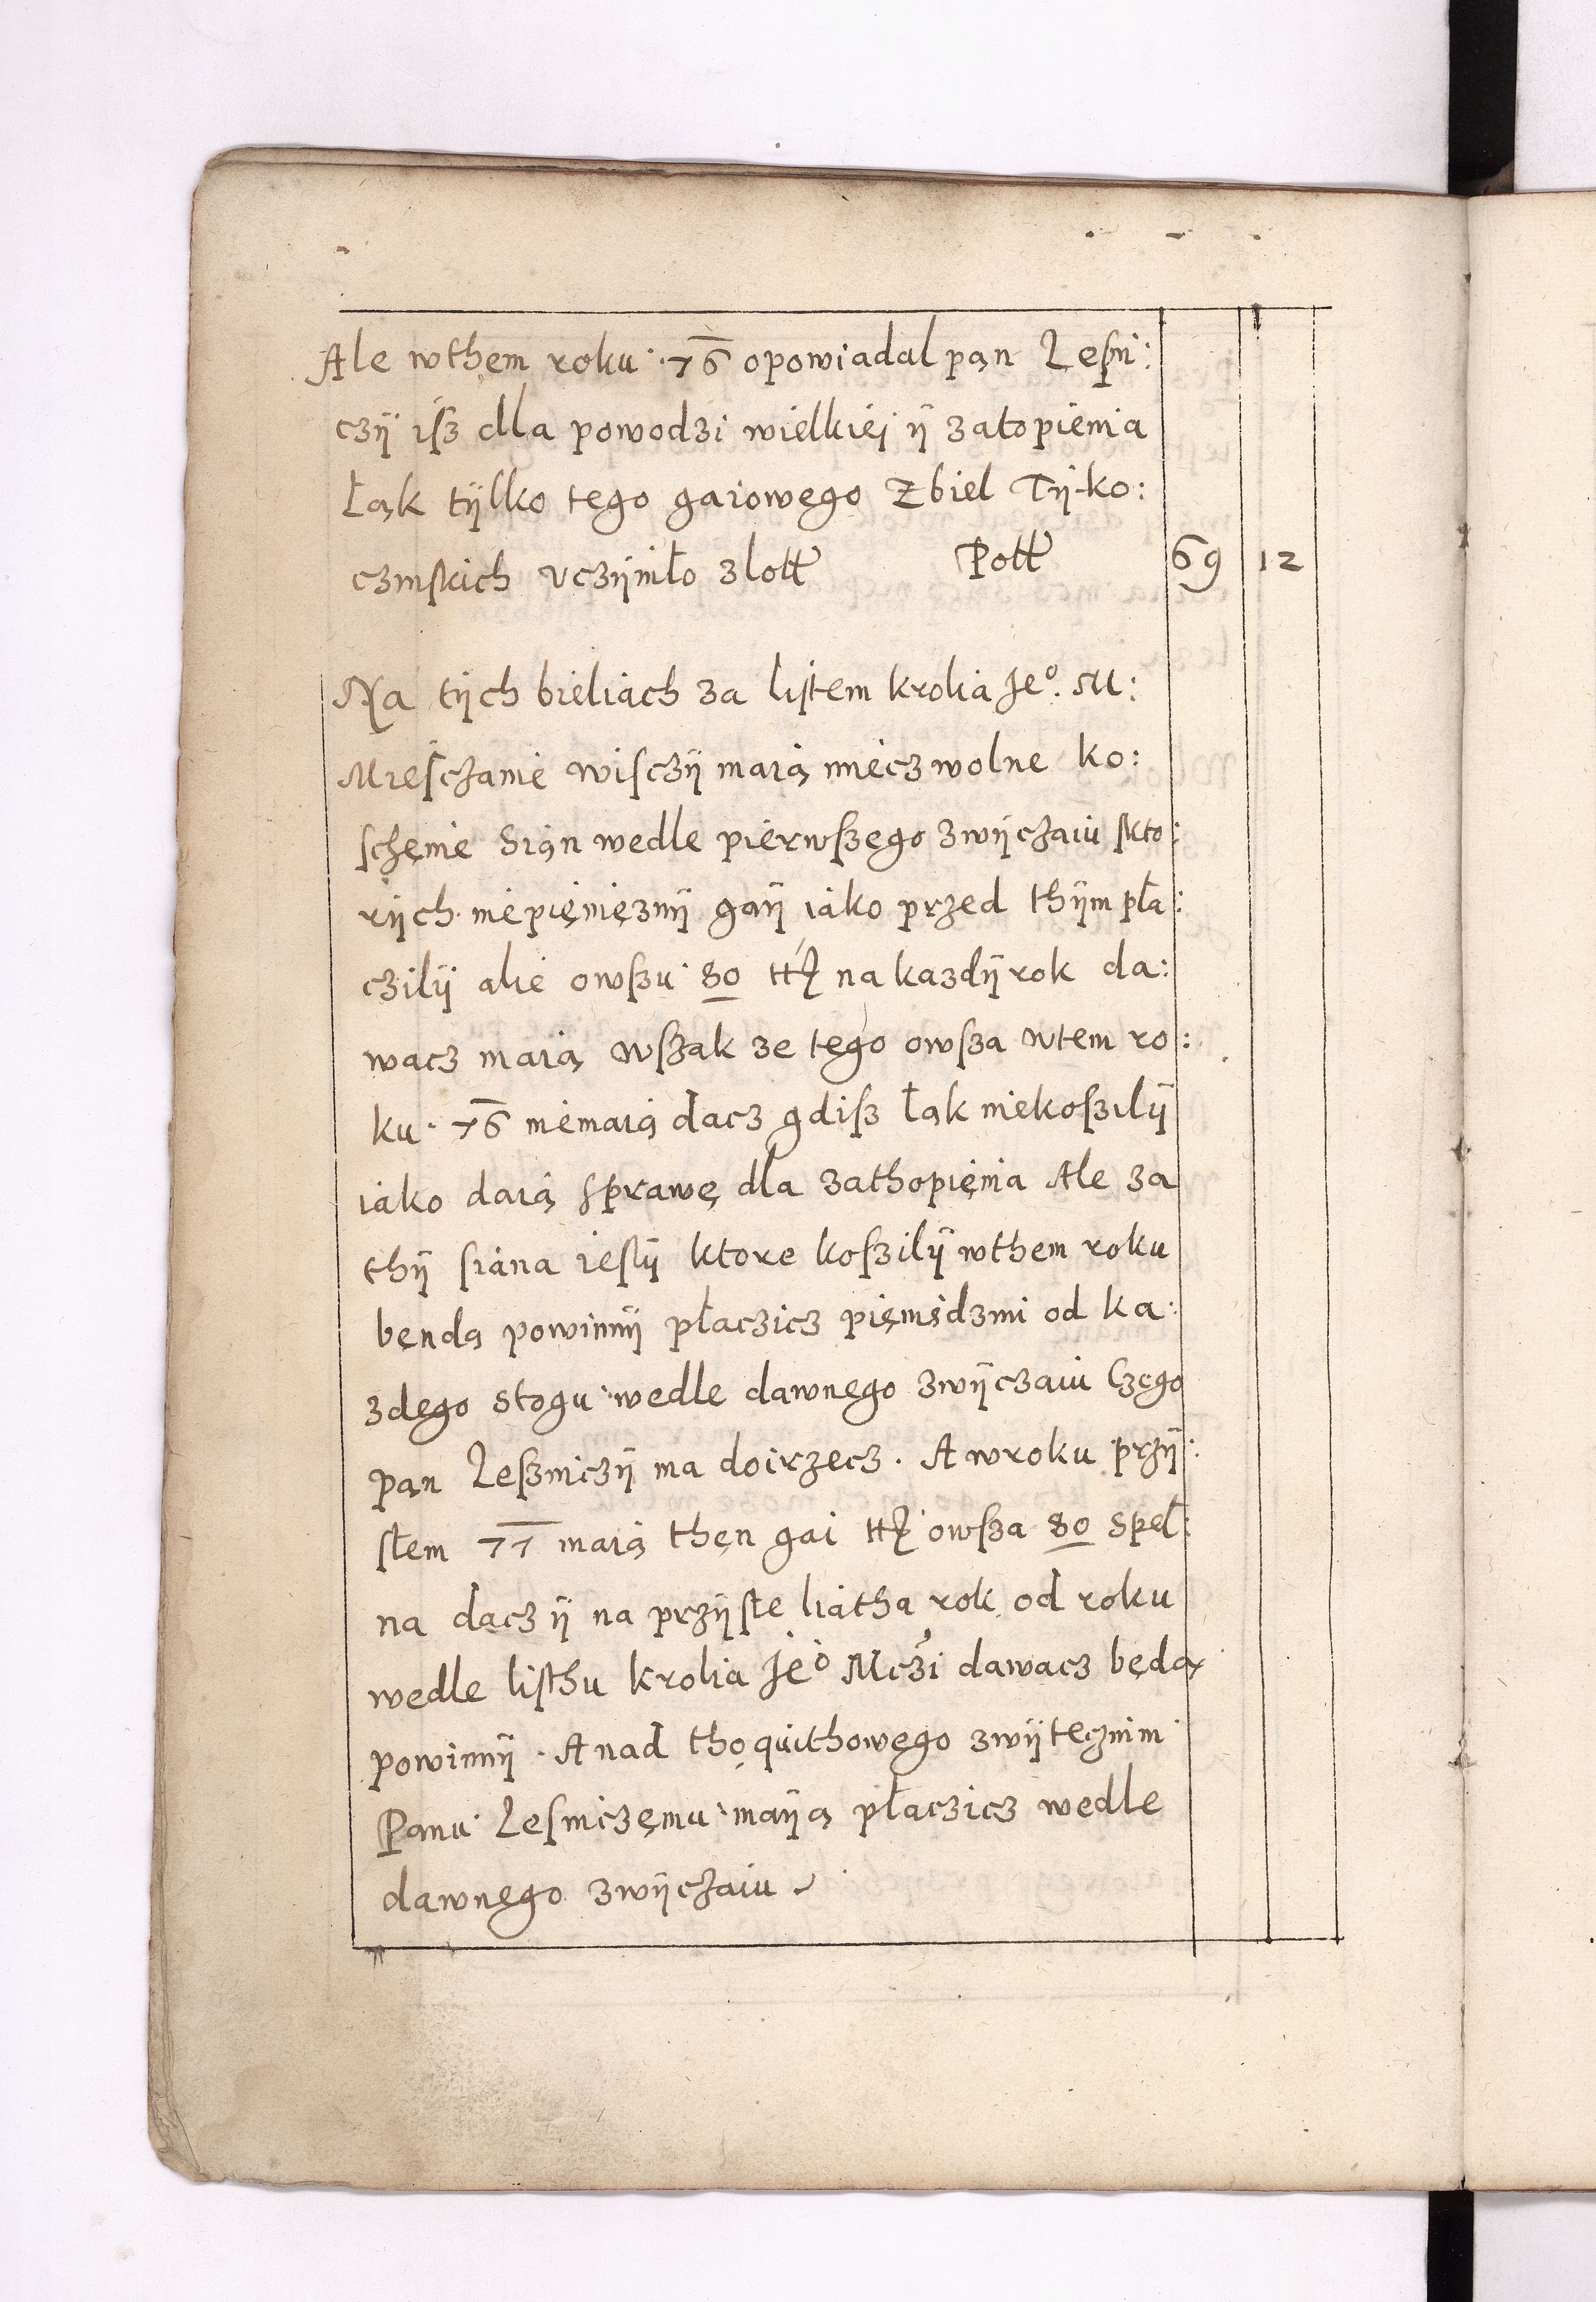 Ale wthem roku · 76 opowiadal pan Leſni:
czÿ iſz dla powodzi wielkiei ÿ zatopienia
Łąk tÿlko tego gaiowego Zbiel Tÿko:
czinſkich vczÿniło zlott Pott 69 12
Na tÿch bieliach za liſtem krolia Ieº. M:
Mieſczanie wiſczÿ maią miecz wolne ko:
ſchenie Sian wedle pierwſzego zwÿczaiu ſkto:
rÿch niepienieznÿ gaÿ iako przed thÿm pła:
czilÿ alie owſzu 80 na kazdÿ rok da:
wacz maią wſzak ze tego owſza wtem ro:
ku · 76 niemaią dacz gdiſz łąk niekoſzilÿ
iako daią ſprawę dla zathopienia Ale za
thÿ ſiana ieſlÿ ktore koſzilÿ wthem roku
bendą powinnÿ płaczicz pieniedzmi od ka:
zdego stogu wedle dawnego zwÿczaiu Czego
pan Leſzniczÿ ma doirzecz. A wroku przÿ:
ſłem 77 maią then gai owſza 80 speł:
na dacz ÿ na przÿſłe liatha rok od roku
wedle liſthu krolia Ieº Mczi dawacz będą
powinnÿ · A nad tho quithowego zwÿtecznim
Panu Leſniczemu maÿą płaczicz wedle
dawnego zwÿczaiu